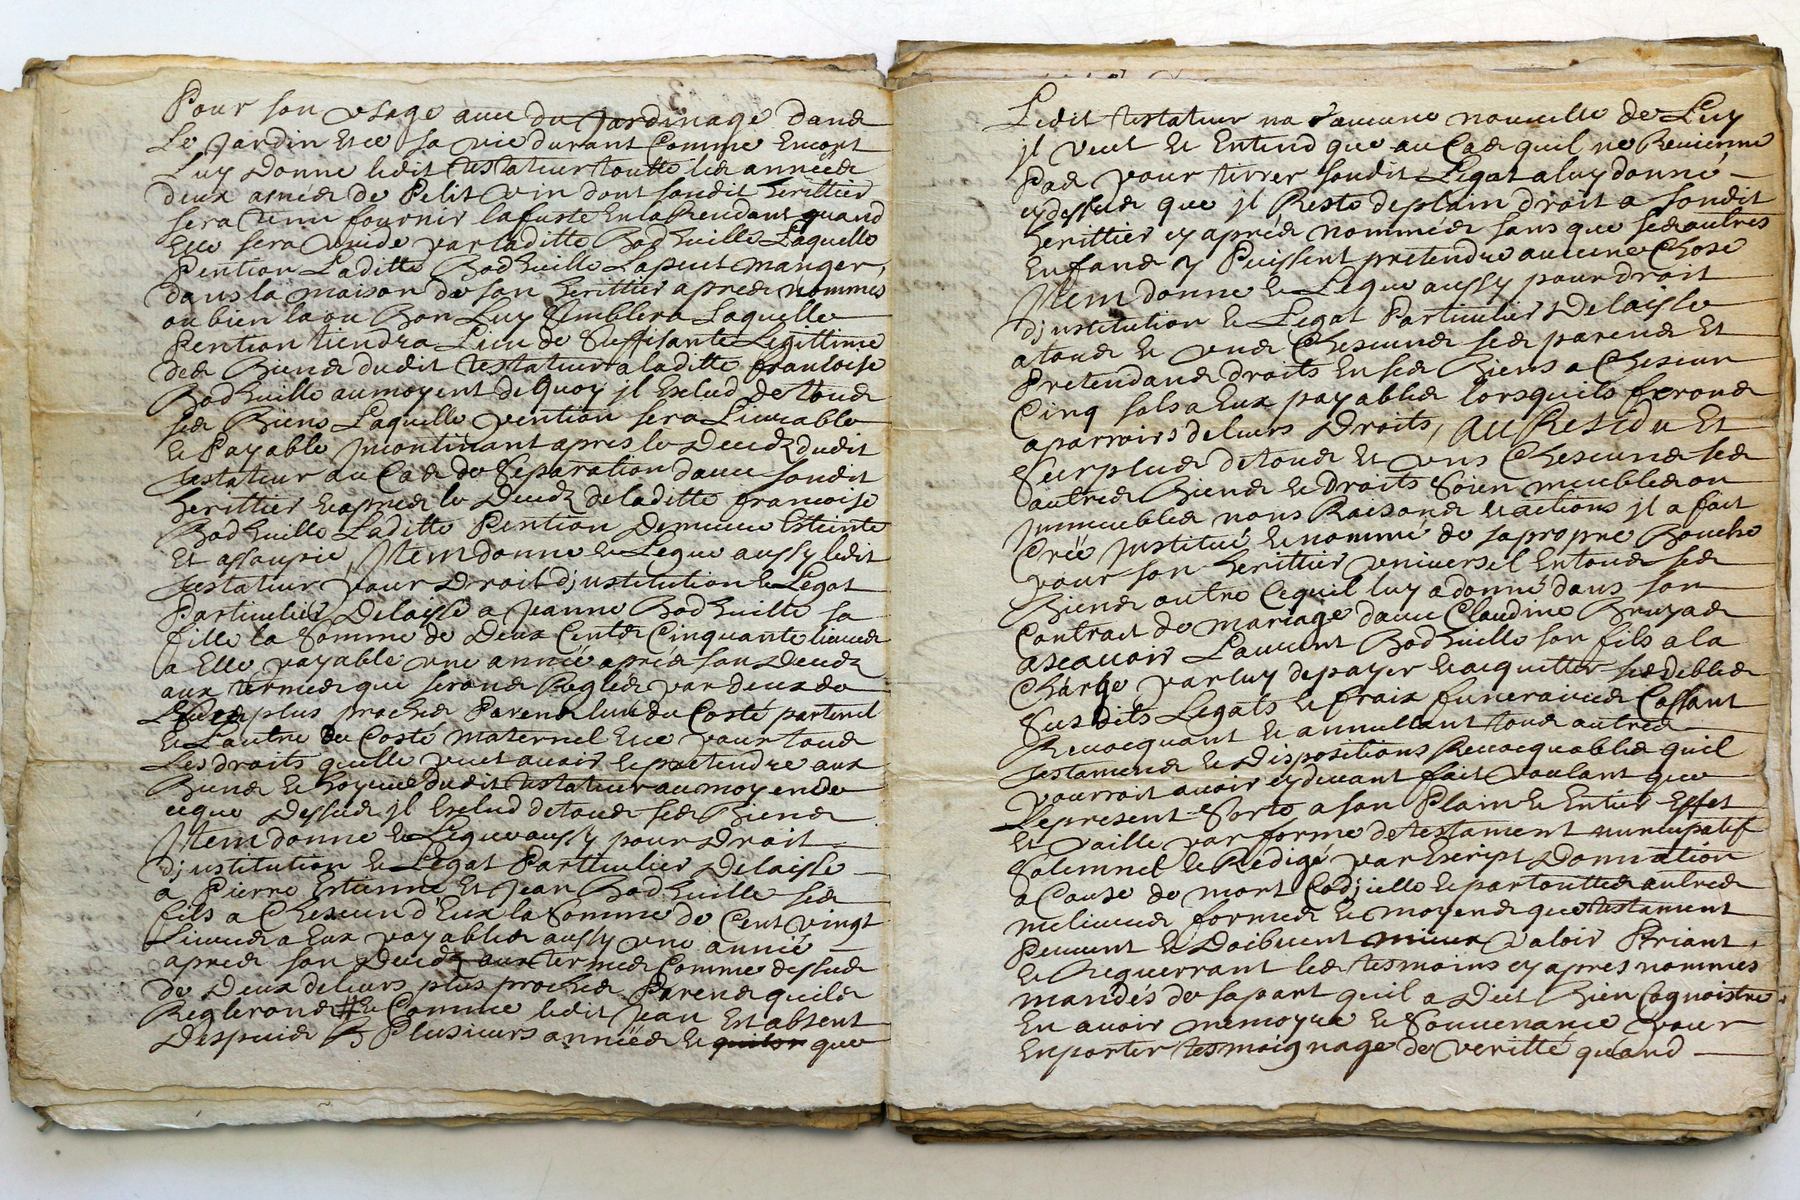 Pour son usage avec du Jardinage dans
Le Jardin Et ce sa vie durant Comme Encort
Luy Donne ledit testateur toutte les années
deux asnees de Petit vin dont sondit herittier
sera tenu fournir la fuste En la Rendant quand
Elle sera vuide par laditte Bodhuille Laquelle
Pention Laditte Bodhuille La peut manger
dans la maison de son herittier apres nommes
ou bien la ou Bon Luy semblera Laquelle
Pention tiendra Lieu de Suffisante Legittime
des Biens dudit testateur a laditte francoise
Bodhuille au moyent de quoy jl Exclud de tous
ses Biens Laquelle pention sera Livrable
Et Payable jncontinant apres le Decedz dudit
testateur au Cas de Separation davec sondit
herittier Et apres le Decedz de laditte francoise
Bodhuille Laditte Pention Demeure Esteinte
Et assoupie, Jtem donne Et Legue aussy ledit
testateur pour Droit djnstitution Et Legat
Particulier Delaisse a Jeanne Bodhuille sa
fille la Somme de Deux Cents Cinquante livres
a Elle payable une année apres son Decedz
aux termes que serons Regles par deux de
plus proches Parens lun du Costé paternel
Et Lautre du Costé maternel Et ce pour tous
Les droits quelle peut avoir Et pretendre aux
Biens Et hoyrie dudit testateur au moyen de
ceque Dessus jl Exclud de tous ses Biens
Jtem donne Et Legue aussy pour Droit
djnstitution Et Legat Particulier Delaisse
a Pierre Estienne Et Jean Bodhuille ses
fils a Chescun d'Eux la Somme de Cent vingt
Livres a Eux payables aussy une année
apres son Decedz aux termes Comme dessus
de Deux de leurs plus proches Parens quils
Reglerons # Et Comme ledit Jean Est absent
Despuis Plusieurs années Et que
Ledit testateur na aucune nouvelle de Luy
jl veut Et Entend que au Cas quil ne Revienne
Pas pour tirrer sondit Legat a luy donné
cy dessus que jl Reste de plain droit a sondit
herittier cy apres nommés sans que ses autres
Enfans y Puissent pretendre aucune Chose
Jtem donne Et Legue aussy pour droit
djnstitution Et Legat Particulier Delaisse
a tous Et uns Chescuns ses parens Et
Pretendans droits En ses Biens a Chescun
Cinq sols a Eux payables lorsquils ferons
aparroirs de leurs Droits, Au Residu Et
Surplus de tous Et uns Chescuns ses
autres Biens Et Droits Soien meubles ou
jmmeubles noms Raisons Et actions jl a fait
Créé jnstitué Et nommé de sa propre Bouche
pour son herittier universel En tous ses
Biens outre Cequil luy a donné dans son
Contrait de mariage davec Claudine Bruyas
a scavoir Laurent Bodhuille son fils a la
Charge par luy de payer Et acquitter ses debtes
Susdits Legats Et fraix funeraires Cassant
Revocquant Et annullant tous autres
testamens Et Dispositions Revocquables quil
pourroit avoir cy devant fait voulant que
Le present Sorte a son Plain Et Entier Effet
Et vaille par forme de testament nuncupatif
Solemnel Et Redigé par Escript Donnation
a Cause de mort Codjcille Et par touttes autres
melieures formes Et moyens que testament
Peuvent Et Doibvent mieux valoir Priant
Et Requerrant les tesmoins cy apres nommes
mandés de sa part quil a Diet Bien Cognoistre
En avoir memoyre Et Souvenance pour
En porter tesmoignage de veritté quand